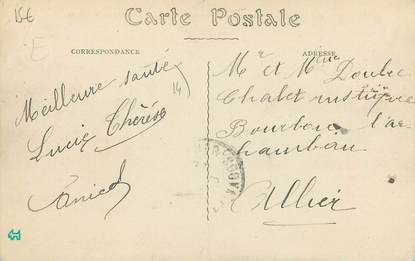 15€
E
Carte Postale
CORRESPONDANCE
ADRESSE
Meilleure santé
Lucie Thérèse
14
Mr et Mme Doubre
Chalet rustique
Bourbon l'ar
chambau
Allier